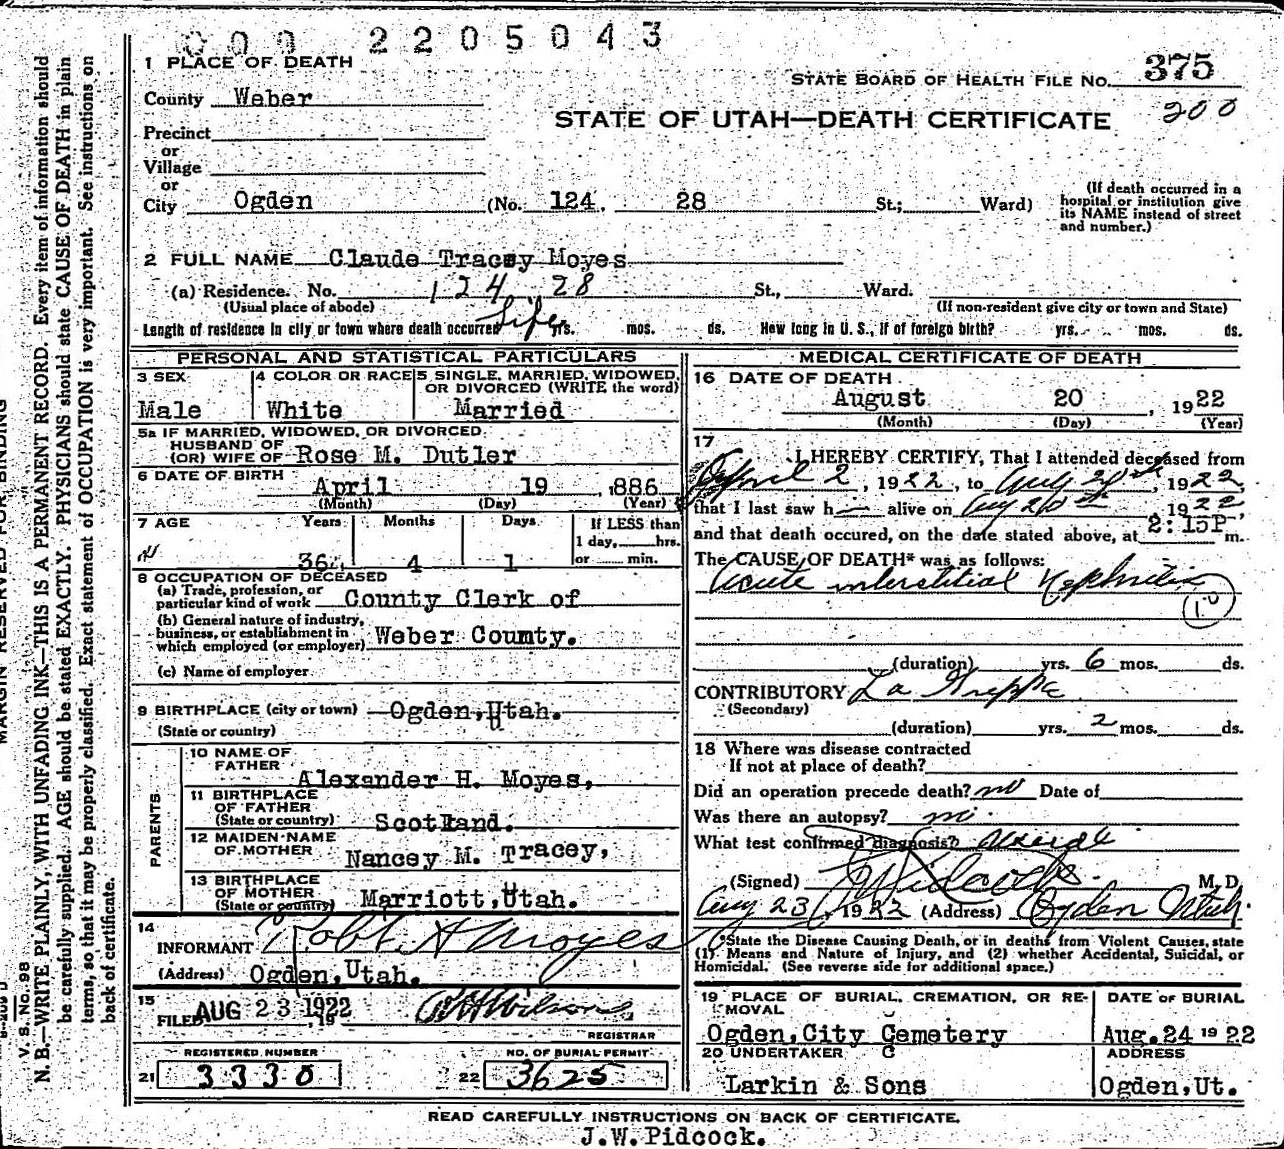 000 2205043
1 PLACE OF DEATH
STATE BOARD OF HEALTH FILE NO. 375
County Weber
200
STATE OF UTAH—DEATH CERTIFICATE
Precinct
or
Village
or
City Ogden (No. 124, 28 St.; Ward)
(If death occurred in a
hospital or institution give
its NAME instead of street
and number.)
2 FULL NAME Claude Tracey Moyes
(a) Residence. No. 124 28 St., Ward.
(Usual place of abode) (If non-resident give city or town and State)
Length of residence in city or town where death occurred Life yrs. mos. ds. How long in U. S., if of foreign birth? yrs. mos. ds.
PERSONAL AND STATISTICAL PARTICULARS
3 SEX
Male
4 COLOR OR RACE
White
5 SINGLE, MARRIED, WIDOWED,
OR DIVORCED (WRITE the word)
Married
5a IF MARRIED, WIDOWED, OR DIVORCED
HUSBAND OF
(OR) WIFE OF Rose M. Dutler
6 DATE OF BIRTH
April 19, 1886
(Month) (Day) (Year)
7 AGE
Years Months Days If LESS than
1 day, hrs.
36 4 1 or min.
8 OCCUPATION OF DECEASED
(a) Trade, profession, or
particular kind of work County Clerk of
(b) General nature of industry,
business, or establishment in
which employed (or employer) Weber County.
(c) Name of employer
9 BIRTHPLACE (city or town) Ogden, Utah.
(State or country)
PARENTS
10 NAME OF
FATHER
Alexander H. Moyes,
11 BIRTHPLACE
OF FATHER
(State or country) Scotland.
12 MAIDEN NAME
OF MOTHER Nancey M. Tracey,
13 BIRTHPLACE
OF MOTHER
(State or country) Marriott, Utah.
14
INFORMANT Robt. H Moyes
(Address) Ogden, Utah.
15
FILED AUG 23 1922, 19
Wilson
REGISTRAR
REGISTERED NUMBER
21 3330
NO. OF BURIAL PERMIT
22 3625
MEDICAL CERTIFICATE OF DEATH
16 DATE OF DEATH
August 20, 1922
(Month) (Day) (Year)
17
I HEREBY CERTIFY, That I attended deceased from
April 2, 1922, to Aug 20th, 1922,
that I last saw h alive on Aug 20th, 1922,
and that death occured, on the date stated above, at 2:15P m.
The CAUSE OF DEATH* was as follows:
Acute interstitial Nephritis
(duration) yrs. 6 mos. ds.
CONTRIBUTORY La Grippe
(Secondary)
(duration) yrs. 2 mos. ds.
18 Where was disease contracted
If not at place of death?
Did an operation precede death? no Date of
Was there an autopsy? no
What test confirmed diagnosis?
(Signed) Pidcock M. D.
Aug 23, 1922 (Address) Ogden Utah.
*State the Disease Causing Death, or in deaths from Violent Causes, state
(1) Means and Nature of Injury, and (2) whether Accidental, Suicidal, or
Homicidal. (See reverse side for additional space.)
19 PLACE OF BURIAL, CREMATION, OR RE-
MOVAL
Ogden, City Cemetery
DATE OF BURIAL
Aug. 24 1922
20 UNDERTAKER
Larkin & Sons
ADDRESS
Ogden, Ut.
READ CAREFULLY INSTRUCTIONS ON BACK OF CERTIFICATE.
J.W. Pidcock.
MARGIN RESERVED FOR BINDING
V. S. No. 98
N. B.—WRITE PLAINLY, WITH UNFADING INK—THIS IS A PERMANENT RECORD. Every item of information should
be carefully supplied. AGE should be stated EXACTLY. PHYSICIANS should state CAUSE OF DEATH in plain
terms, so that it may be properly classified. Exact statement of OCCUPATION is very important. See instructions on
back of certificate.